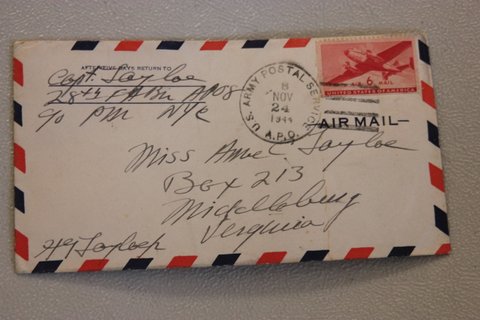 AFTER FIVE DAYS RETURN TO
Capt. Tayloe
28th FA Bn APO 8
c/o PM NYC
U.S. ARMY POSTAL SERVICE
A.P.O.
8
NOV
24
1944
AIR 6 MAIL
UNITED STATES OF AMERICA
AIR MAIL
Miss Tayloe
Box 213
Middleburg
Virginia